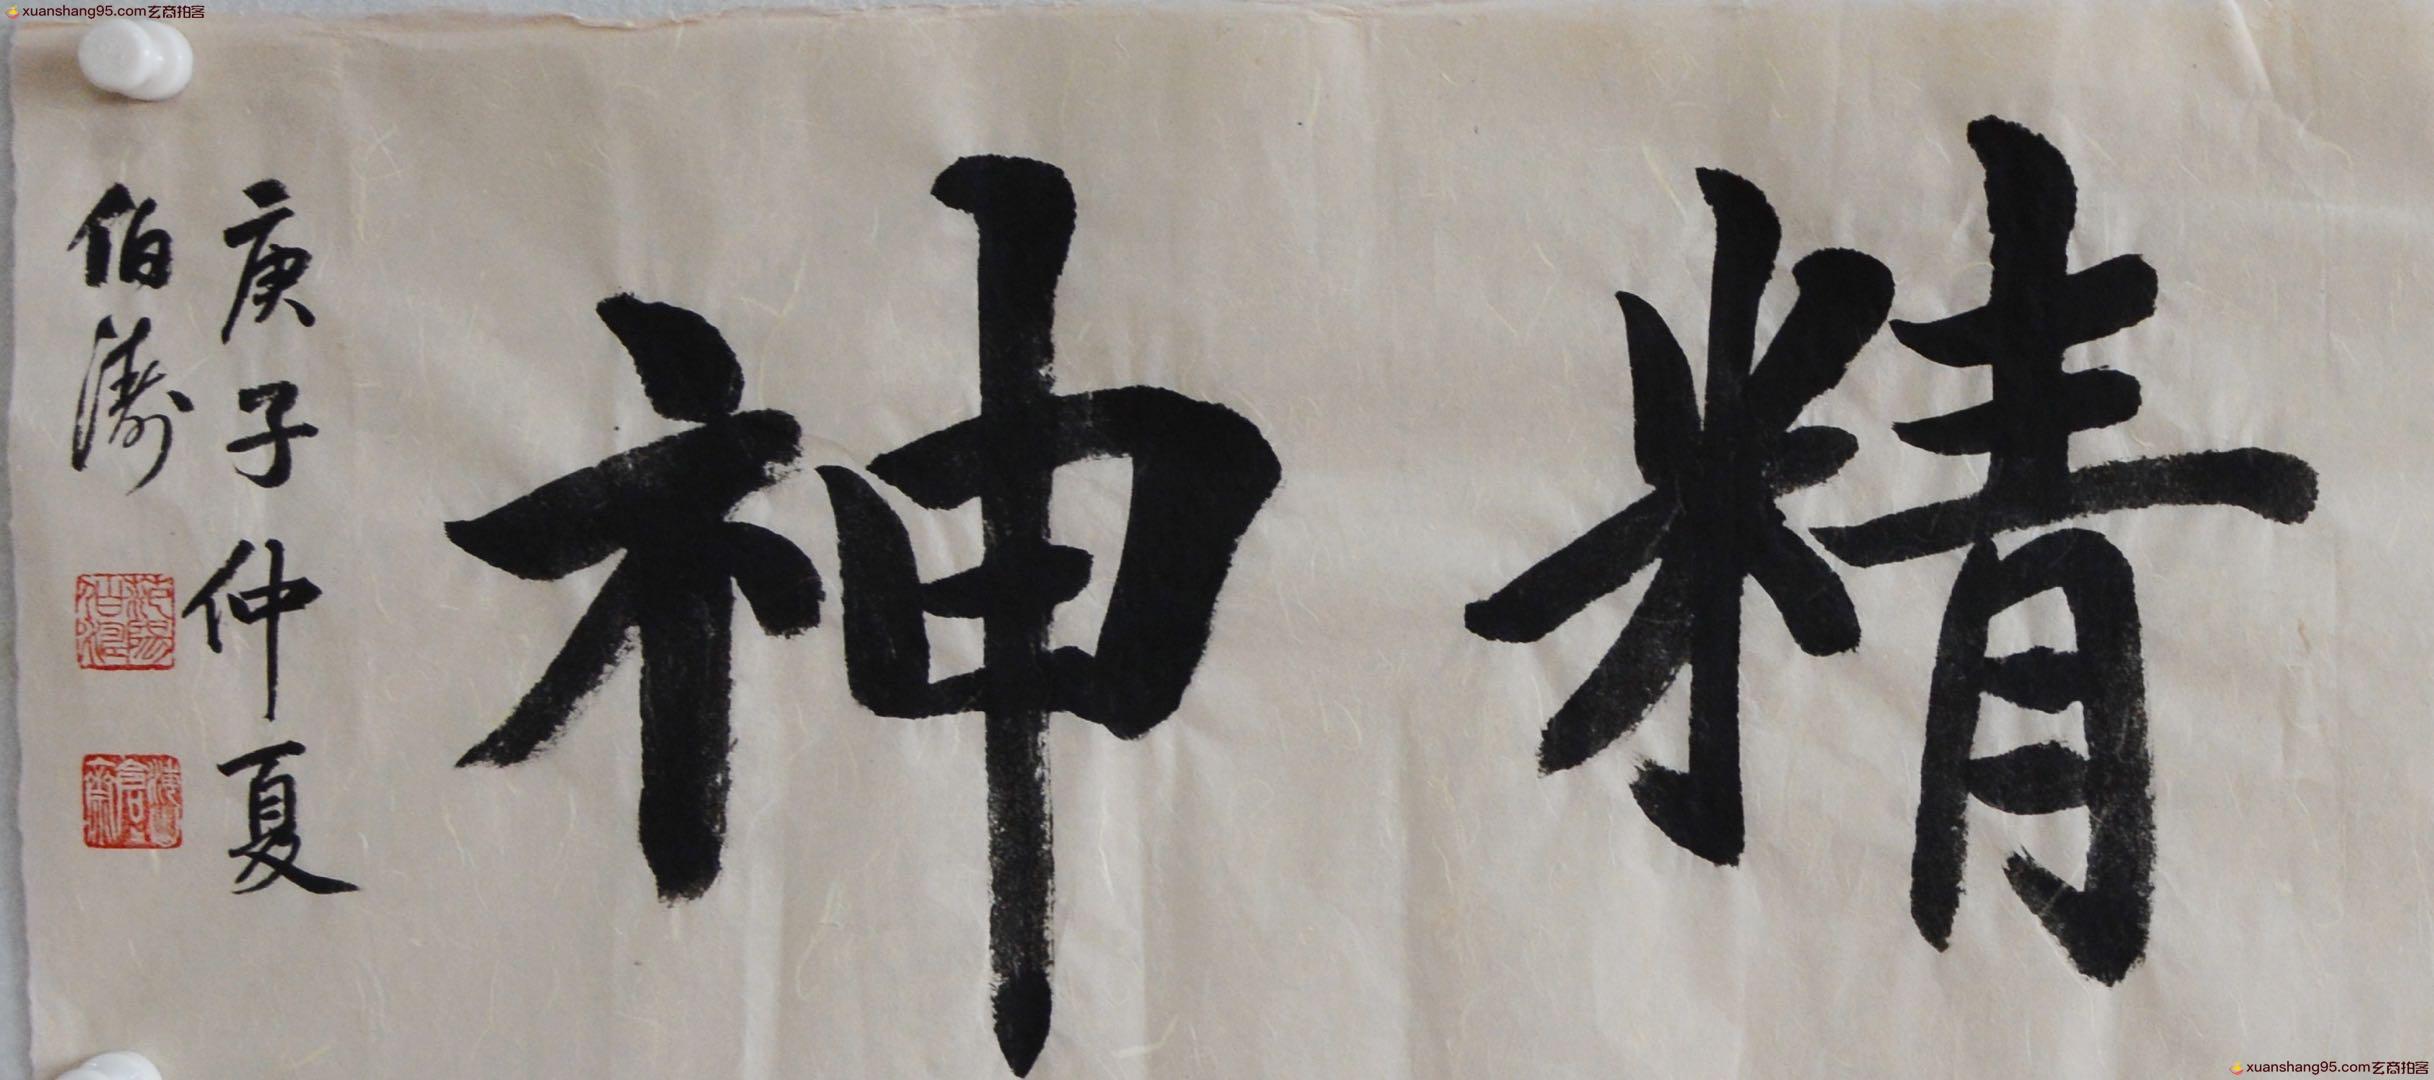 xuanshang95.com玄商拍客
精神
庚子仲夏
伯涛
xuanshang95.com玄商拍客